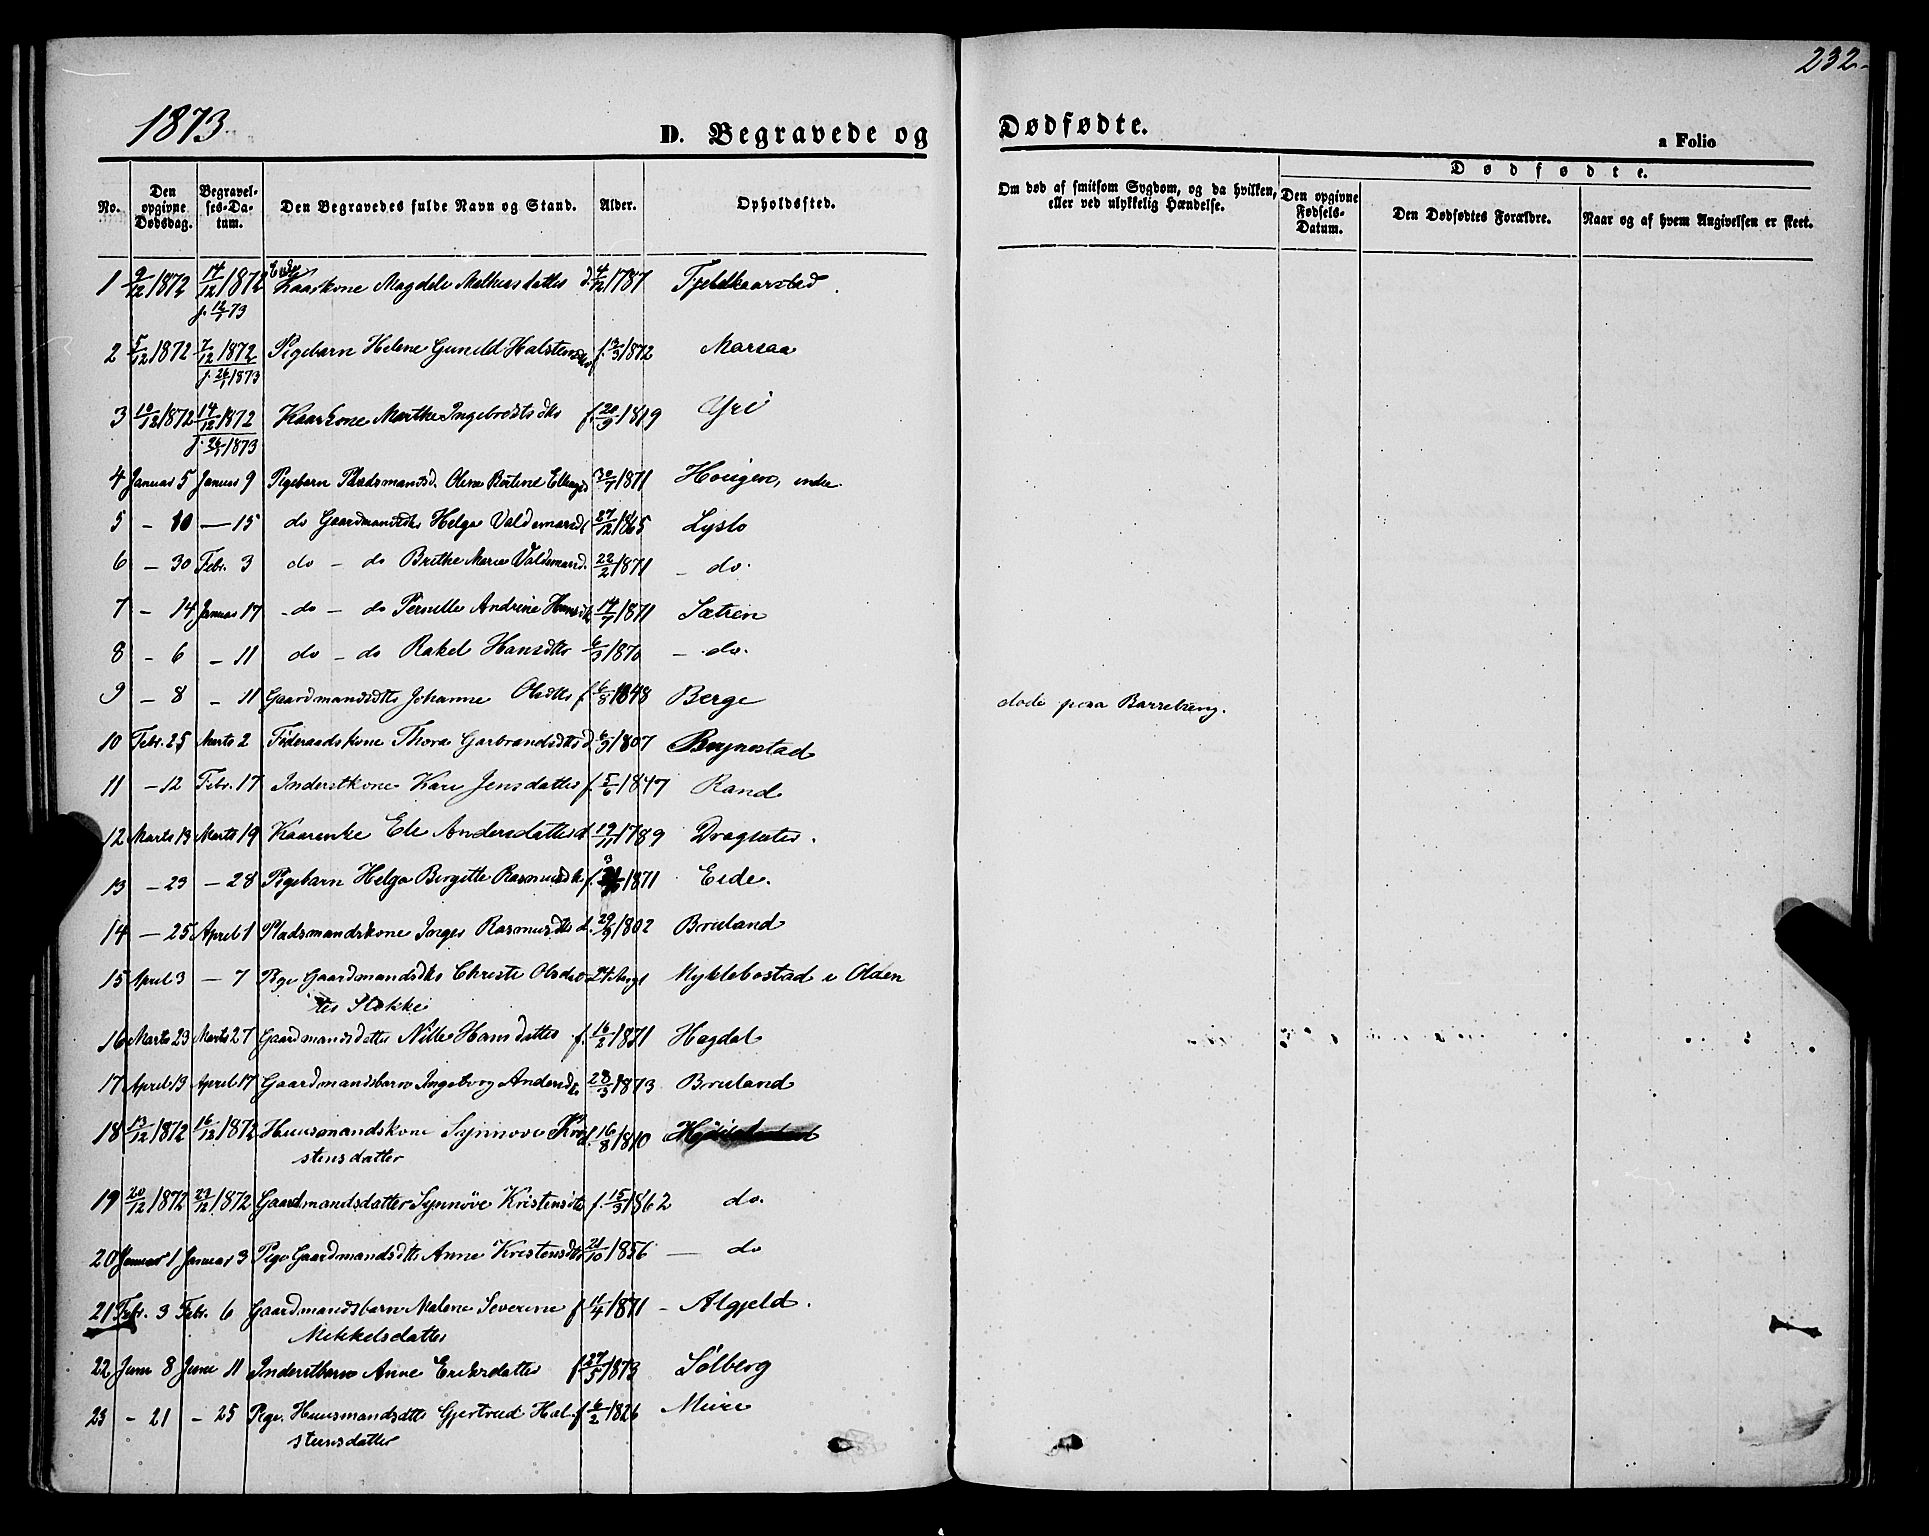 232.
1873.
D. Begravede og Dødfødte.
a Folio
No.
Den opgivne Dødsdag.
Begravelses-Datum.
Den Begravedes fulde Navn og Stand.
Alder.
Opholdssted.
Om død af smitsom Sygdom, og da hvilken, eller ved ulykkelig Hændelse.
Dødfødte.
Den opgivne Fødsels-Datum.
Den Dødfødtes Forældre.
Naar og af hvem Angivelsen er skeet.
1 9/12 1872 14/12 1872 Kaarkone Magdele Mathiasdatter d. 4/12 1787 Fjeldkaarstad
j. 12/1 73
2 5/12 1872 7/12 1872 Pigebarn Helene Gunild Halstensdtr f. 1872 Marsaa
j. 26/1 1873
3 10/12 1872 14/12 1872 Kaarkone Marthe Ingebretsdtr f. 20/9 1819 Yri
j. 26/1 1873
4 Januar 5 Januar 9 Pigebarn Pladsmandsd. Oline Bertine 30/7 1871 Hougen, indre
5 - 10 — 15 do Gaardmandsdtr Helga Valdemarsdt 27/12 1865 Lyslo
6 - 30 Febr. 3 do - do Brithe Marie Valdemarsd. 22/2 1871 - do.
7 - 14 Januar 17 do - do Pernille Andrine Hansdt 14/7 1871 Sætren
8 - 6 - 11 do - do Rakel Hansdtr 6/3 1870 - do.
9 - 8 - 11 Gaardmandsdtr Johanne Olsdtr f. 6/8 1848 Berge døde paa Barselseng.
10 Febr. 25 Marts 2 Føderaadskone Thora Garbrandsdtr d. 6/3 1807 Brynestad
11 - 12 Febr. 17 Inderstkone Kari Jensdatter f. 5/6 1847 Rand
12 Marts 13 Marts 19 Kaarenke Eli Andersdatter d. 19/11 1789 Dragsæter.
13 - 23 - 28 Pigebarn Helga Birgitte Rasmusdtr f. 1871 Eide.
14 - 25 April 1 Pladsmandskone Inger Rasmusdtr d. 29/9 1802 Bruland
15 April 3 - 7 Pige Gaardmandsdtr Christi Olsdat- Myklebostad i Olden
ter Stokke
16 Marts 23 Marts 27 Gaardmandsdatter Nille Hansdatter f. 16/2 1871 Hagdal
17 April 13 April 17 Gaardmandsbarn Ingeborg Andersdtr 28/3 1873 Bruland
18 13/12 1872 16/12 1872 Huusmandskone Synnøve Kri- 16/8 1810
stensdatter
19 20/12 1872 27/12 1872 Gaardmandsdatter Synnøve Kristensdtr f. 15/3 1862 do.
20 Januar 1 Januar 3 Pige Gaardmandsdtr Anne Kristensdtr 21/10 1856 — do
21 Febr. 3 Febr. 6 Gaardmandsbarn Malene Severine f. 11/4 1871 - Algjeld.
Mikkelsdatter
22 Juni 8 Juni 11 Inderstbarn Anne Eriksdatter f. 27/5 1873 Solberg
23 - 21 - 25 Pige. Huusmandsdtr Gjertrud Hal- f. 6/2 1826 Muri
stensdatter